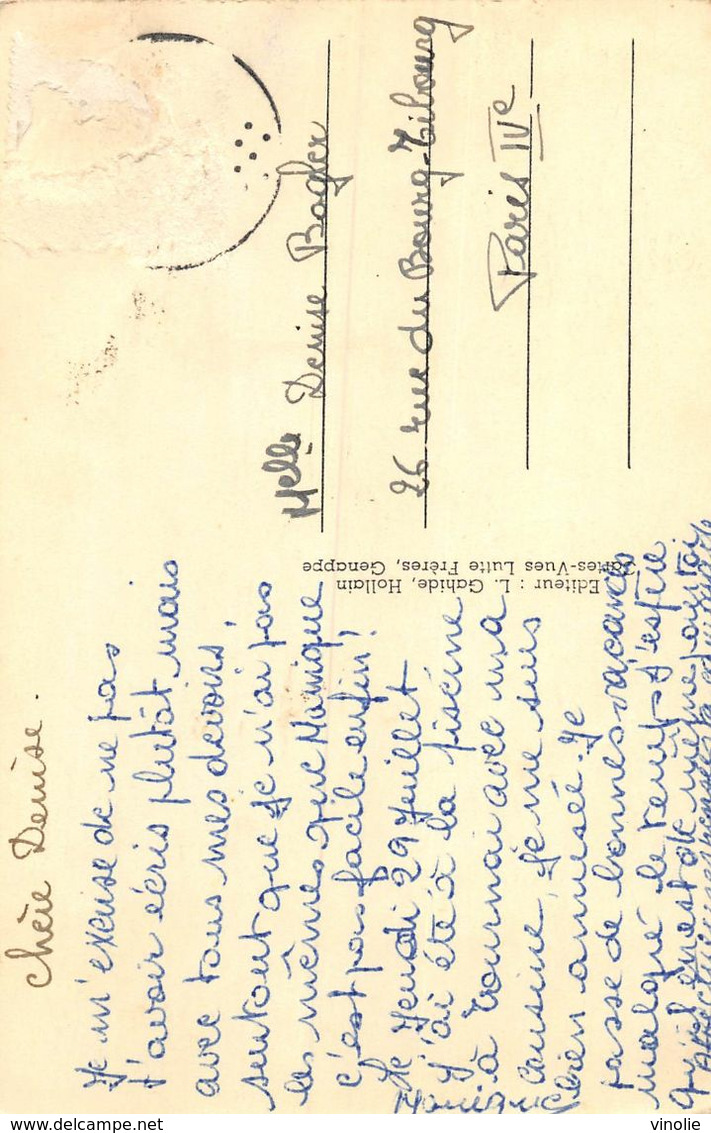 chère Denise.
Je m'excuse de ne pas
t'avoir écris plutôt mais
avec tous mes devoirs,
surtout que je n'ai pas
les mêmes que Monique
c'est pas facile enfin!
Le Jeudi 29 Juillet
j'ai été à la piscine
à Tournai avec ma
cousine, je me suis
bien amusée. Je
passe de bonnes vacances
malgré le temps. J'espère
qu'il en est de même pour toi
Monique
Editeur : L. Gahide, Hollain
Cartes-Vues Lutte Frères, Genappe
Melle Denise Bogler
26 rue du Bourg-Tibourg
Paris IVe
vinolie